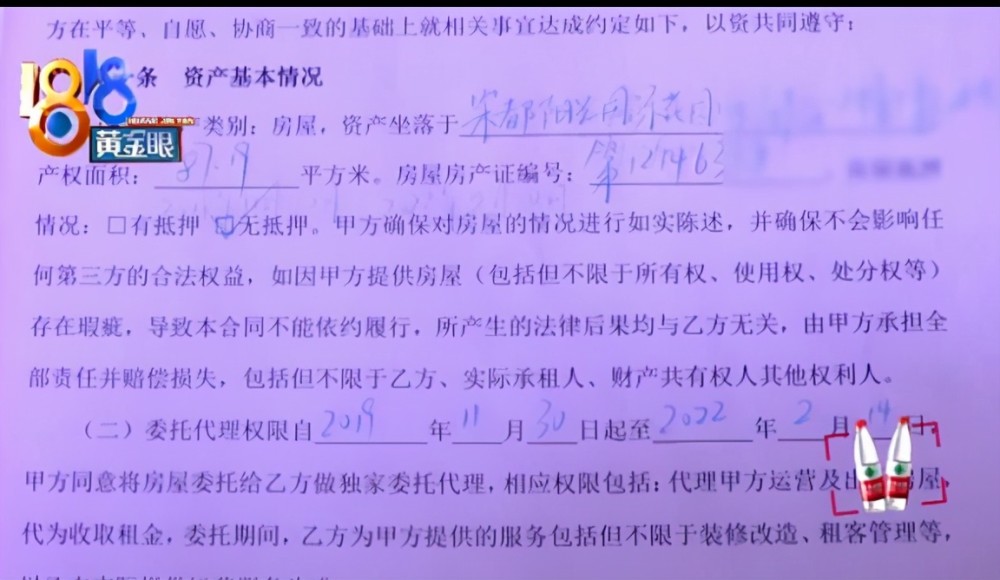 方在平等、自愿、协商一致的基础上就相关事宜达成约定如下，以资共同遵守：
1818 条 资产基本情况
黄金眼 类别：房屋，资产坐落于宋都阳光国际花园
产权面积：87.19平方米。房屋房产证编号：第127463
情况：□有抵押 ☑无抵押。甲方确保对房屋的情况进行如实陈述，并确保不会影响任
何第三方的合法权益，如因甲方提供房屋（包括但不限于所有权、使用权、处分权等）
存在瑕疵，导致本合同不能依约履行，所产生的法律后果均与乙方无关，由甲方承担全
部责任并赔偿损失，包括但不限于乙方、实际承租人、财产共有权人其他权利人。
（二）委托代理权限自2019年11月30日起至2022年2月14日，
甲方同意将房屋委托给乙方做独家委托代理，相应权限包括：代理甲方运营及出 房屋，
代为收取租金，委托期间，乙方为甲方提供的服务包括但不限于装修改造、租客管理等，